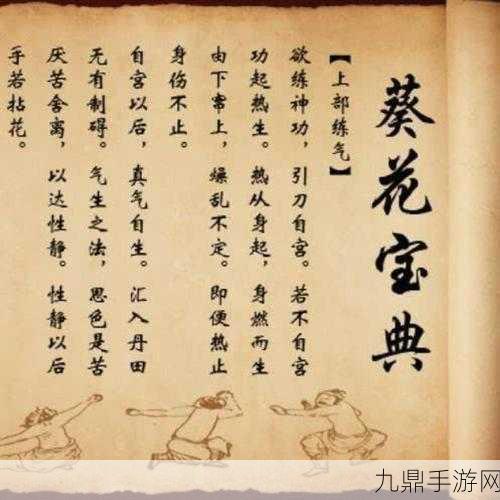 葵花宝典
【上部练气】
欲练神功，引刀自宫。若不自宫
功起热生。热从身起，身燃而生
由下窜上，燥乱不定。即便热止
身伤不止。
自宫以后，真气自生。汇入丹田
无有制碍。气生之法，思色是苦
厌苦舍离，以达性静。性静以后
手若拈花。
九鼎手游网